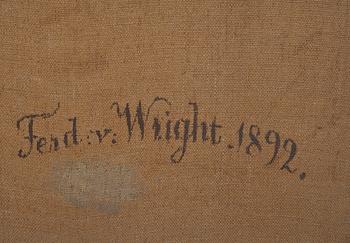 Ferd: v: Wright. 1892.